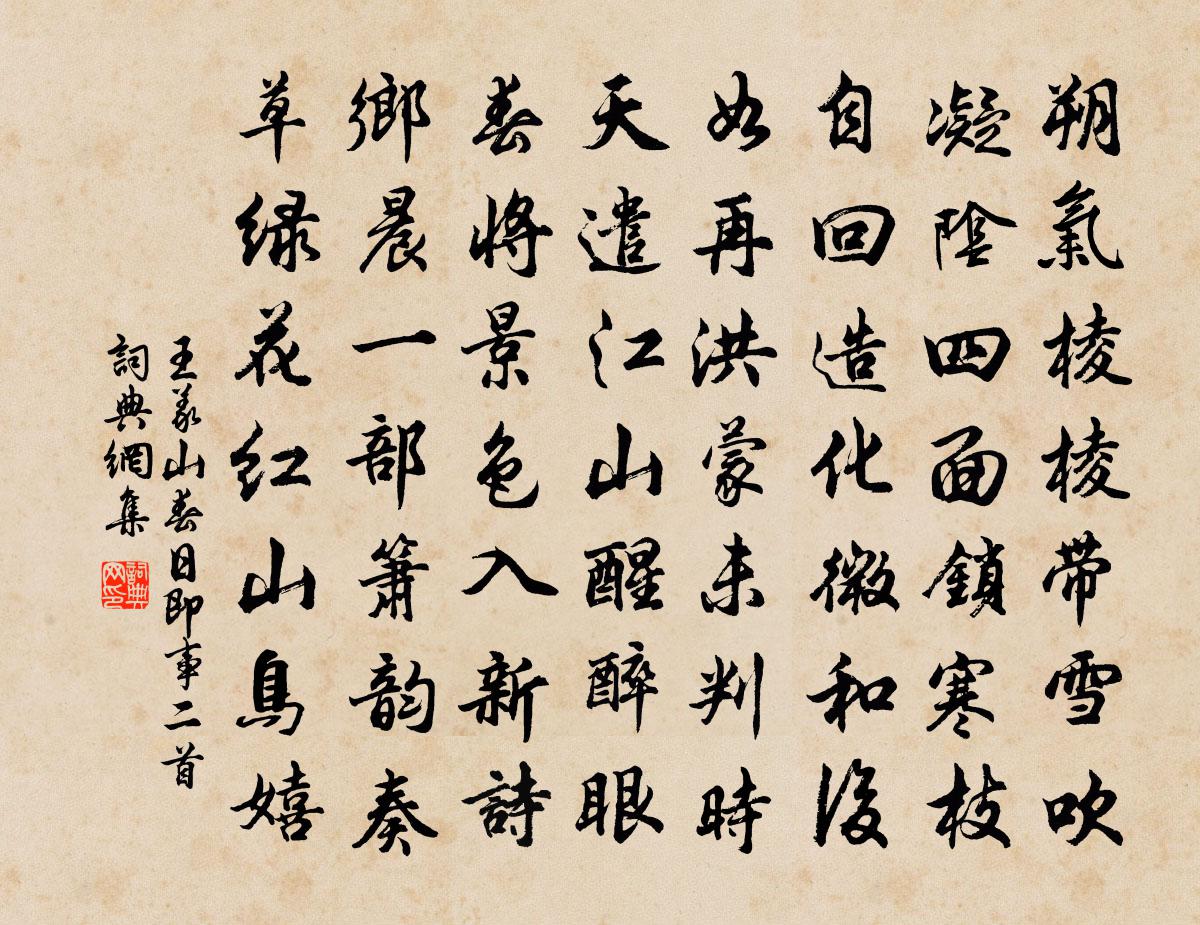 朔氣棱棱带雪吹
凝陰四面鎖寒枝
自回造化微和後
如再洪蒙未判時
天遣江山醒醉眼
春將景色入新詩
鄉晨一部簫韵奏
草绿花红山鳥嬉
王義山春日即事二首
詞典網集
詞典网印